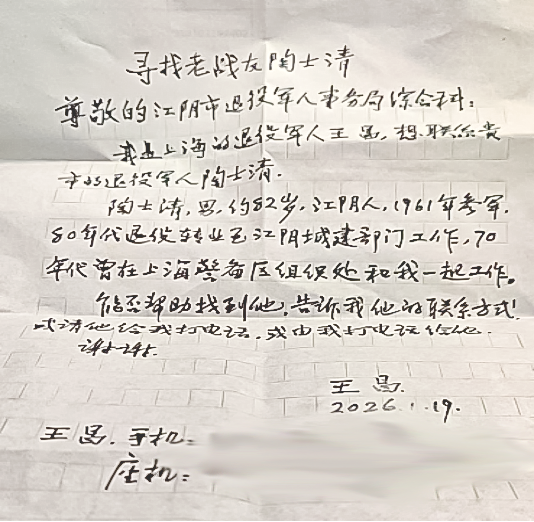 寻找老战友陶士清
尊敬的江阴市退役军人事务局综合科:
我是上海的退役军人王昌,想联系贵
市的退役军人陶士清.
陶士清,男,约82岁,江阴人,1961年参军,
80年代退役转业至江阴城建部门工作,70
年代曾在上海警备区组织处和我一起工作。
能否帮助找到他,告诉我他的联系方式!
或请他给我打电话,或由我打电话给他.
谢谢.
王昌.
2026.1.19.
王昌.手机:
座机: